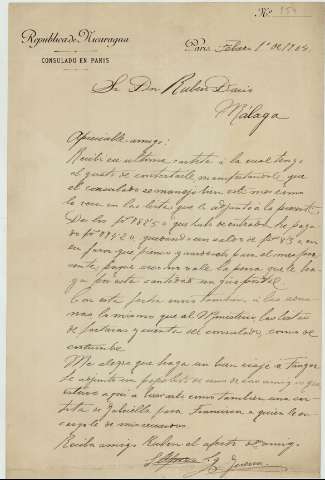 Nº 154
República de Nicaragua
CONSULADO EN PARIS
Paris Febrero 1º de 1904
Sr Don Ruben Dario
Málaga
Apreciable amigo:
Recibí su última cartita a la cual tengo
el gusto de contestarle manifestandole que
el consulado se manejo bien este mes como
lo vera en las listas que le adjunto a la presente.
De los que hubo de entrada he paga
do quedando un valor de
favor que pienso guardarlo para el mes pre
sente, porque no vale la pena que le ha
ga por esta cantidad un giro postal.
Con esta fecha envio tambien a las
lo mismo que al Ministerio las listas
de facturas y cuenta del consulado, como de
costumbre.
Me alegro que haga un buen viaje a Tanger
le adjunto un papelito de uno de sus amigos que
estuvo aqui a buscarlo como tambien una car
tita de Gabriella para Francisca a quien le en
cargole de mis recuerdos.
Reciba amigo Ruben el afecto de su amigo.